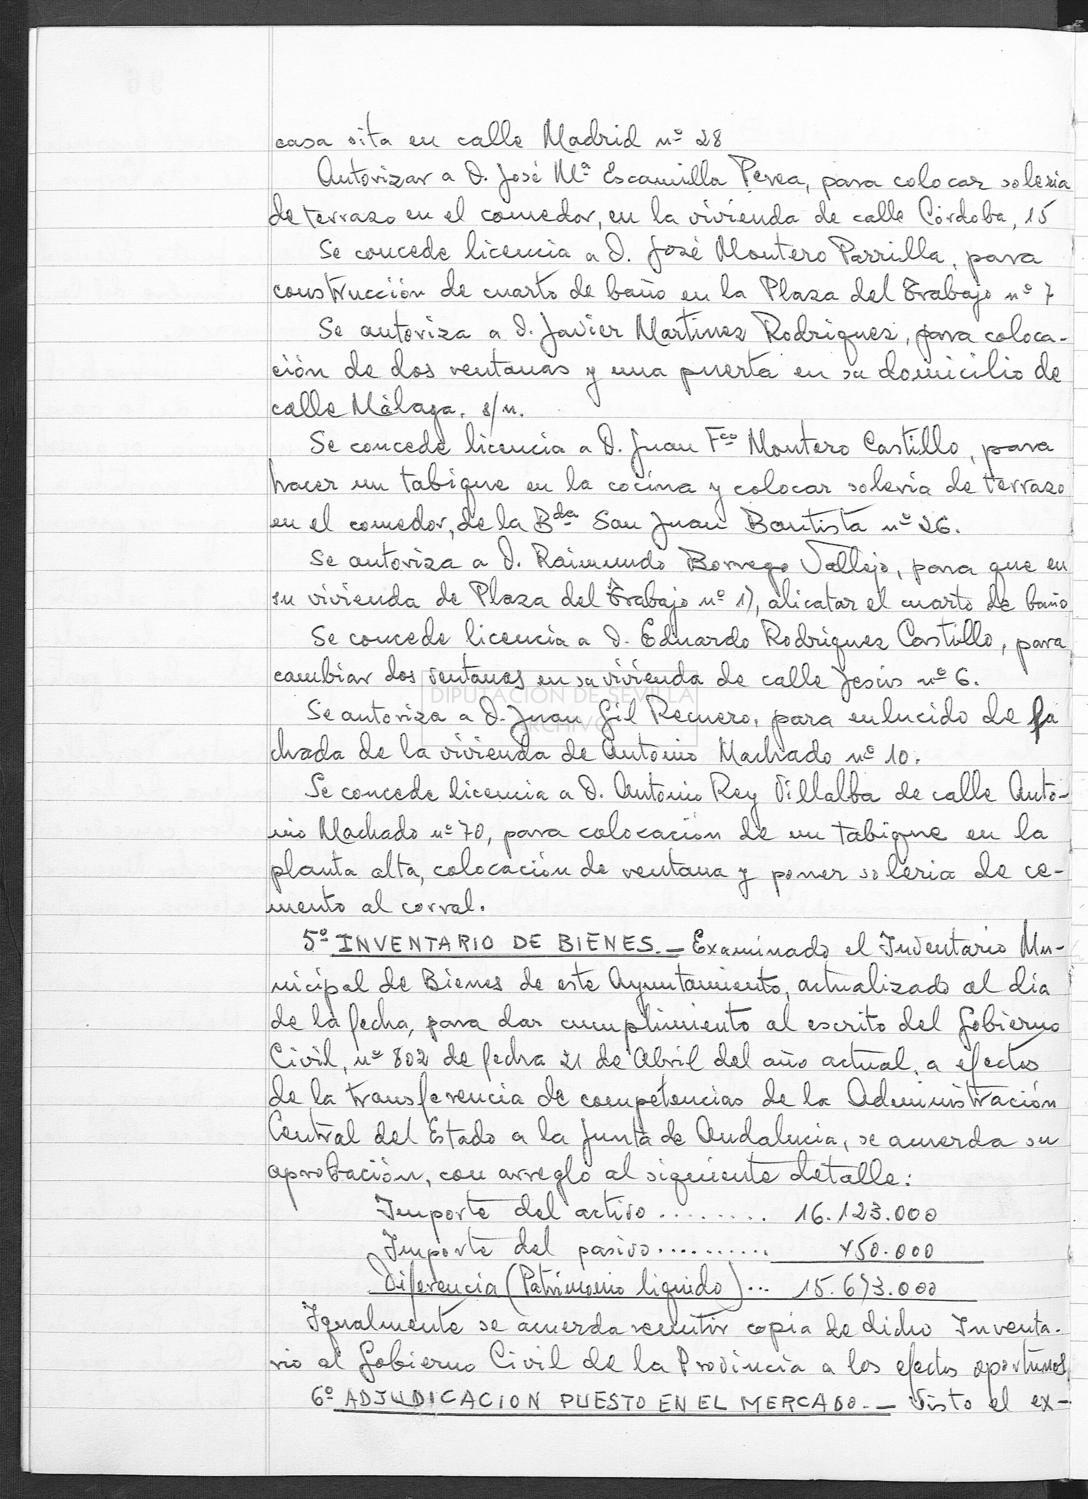 casa sita en calle Madrid nº 28
Autorizar a D. José Mª Escamilla Perea, para colocar soleria
de terrazo en el comedor, en la vivienda de calle Córdoba, 15
Se concede licencia a D. José Montero Parrilla, para
construcción de cuarto de baño en la Plaza del Trabajo nº 7
Se autoriza a D. Javier Martinez Rodriguez, para coloca-
ción de dos ventanas y una puerta en su domicilio de
calle Málaga, s/n.
Se concede licencia a D. Juan Fco Montero Castillo, para
hacer un tabique en la cocina y colocar soleria de terrazo
en el comedor, de la Bda San Juan Bautista nº 26.
Se autoriza a D. Raimundo Borrego Vallejo, para que en
su vivienda de Plaza del Trabajo nº alicatar el cuarto de baño
Se concede licencia a D. Eduardo Rodriguez Castillo, para
cambiar dos ventanas en su vivienda de calle Jesús nº 6.
DIPUTACIÓN DE SEVILLA
ARCHIVO
Se autoriza a D. Juan Gil Recuero, para enlucido de fa
chada de la vivienda de Antonio Machado nº 10.
Se concede licencia a D. Antonio Rey Villalba de calle Anto-
nio Machado nº 70, para colocación de un tabique en la
planta alta, colocación de ventana y poner soleria de ce-
mento al corral.
5º INVENTARIO DE BIENES.- Examinado el Inventario Mu-
nicipal de Bienes de este Ayuntamiento, actualizado al dia
de la fecha, para dar cumplimiento al escrito del Gobierno
Civil, nº 802 de fecha 21 de Abril del año actual, a efectos
de la transferencia de competencias de la Administración
Central del Estado a la Junta de Andalucia, se acuerda su
aprobación, con arreglo al siguiente detalle:
Importe del activo ........ 16.123.000
Importe del pasivo.......... 450.000
Diferencia (Patrimonio liquido)... 15.673.000
Igualmente se acuerda remitir copia de dicho Inventa-
rio al Gobierno Civil de la Provincia a los efectos oportunos
6º ADJUDICACION PUESTO EN EL MERCADO.- Visto el ex-